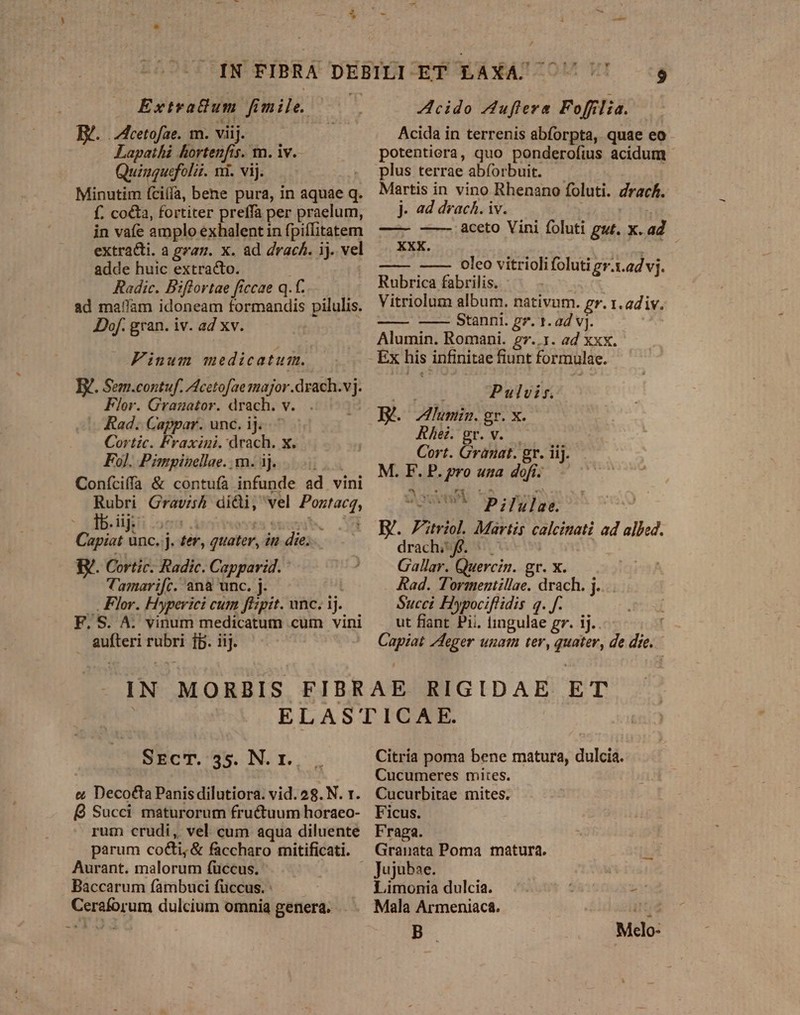 IN FIBRA DEBILI ET LAXA. 9
Extractum simile.
℞. Acetosae. m. viij.
Lapathi hortensis. m. iv.
Quinquefolii. m. vij.
Minutim scissa, bene pura, in aquae q.
s. cocta, fortiter pressa per praelum,
in vase amplo exhalent in spissitatem
extracti. a gran. x. ad drach. ij. vel
adde huic extracto.
Radic. Bistortae siccae q. s.
ad massam idoneam formandis pilulis.
Dos. gran. iv. ad xv.
Vinum medicatum.
℞. Sem. contus. Acetosae major. drach. vj.
Flor. Granator. drach. v.
Rad. Cappar. unc. ij.
Cortic. Fraxini. drach. x.
Fol. Pimpinellae. m. ij.
Conscissa & contusa infunde ad vini
Rubri Gravish dicti, vel Pontacq,
℔. iij.
Capiat unc. j. ter, quater, in die.
℞. Cortic. Radic. Capparid.
Tamarisc. ana unc. j.
Flor. Hyperici cum stipit. unc. ij.
F. S. A. vinum medicatum cum vini
austeri rubri ℔. iij.
Acido Austera Fossilia.
Acida in terrenis absorpta, quae eo
potentiora, quo ponderosius acidum
plus terrae absorbuit.
Martis in vino Rhenano soluti. drach.
j. ad drach. iv.
—— —— aceto Vini soluti gut. x. ad
XXX.
—— —— oleo vitrioli soluti gr. 1. ad vj.
Rubrica fabrilis.
Vitriolum album. nativum. gr. 1. ad iv.
—— —— Stanni. gr. 1. ad vj.
Alumin. Romani. gr. 1. ad xxx.
Ex his infinitae fiunt formulae.
Pulvis.
℞. Alumin. gr. x.
Rhei. gr. v.
Cort. Granat. gr. iij.
M. F. P. pro una dosi.
Pilulae.
℞. Vitriol. Martis calcinati ad albed.
drach. ß.
Gallar. Quercin. gr. x.
Rad. Tormentillae. drach. j.
Succi Hypocistidis q. s.
ut fiant Pil. singulae gr. ij.
Capiat Aeger unam ter, quater, de die.
IN MORBIS FIBRAE RIGIDAE ET
ELASTICAE.
SECT. 35. N. 1.
α Decocta Panis dilutiora. vid. 28. N. 1.
β Succi maturorum fructuum horaeo-
rum crudi, vel cum aqua diluente
parum cocti, & saccharo mitificati.
Aurant. malorum succus.
Baccarum sambuci succus.
Cerasorum dulcium omnia genera.
Citria poma bene matura, dulcia.
Cucumeres mites.
Cucurbitae mites.
Ficus.
Fraga.
Granata Poma matura.
Jujubae.
Limonia dulcia.
Mala Armeniaca.
B Melo-